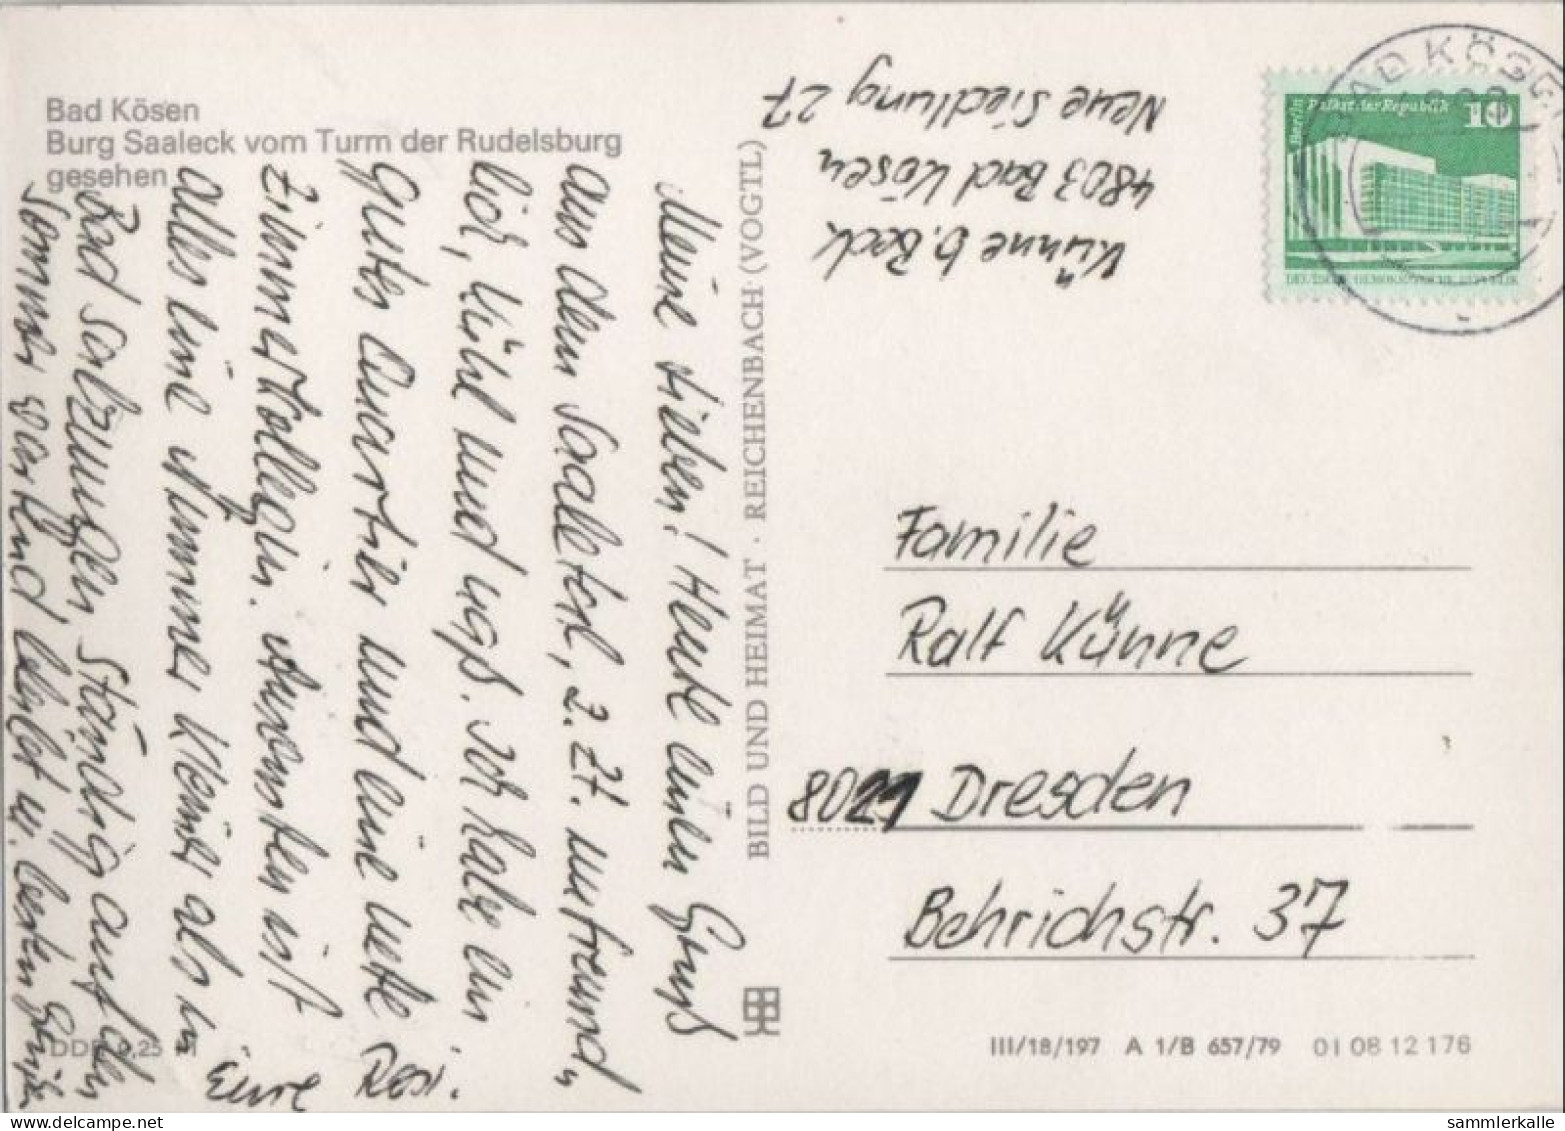 Bad Kösen
Burg Saaleck vom Turm der Rudelsburg
gesehen
Meine Lieben! Heute einen Gruß
aus dem Saaletal, z. Zt. unfreund-
lich, kühl und naß. Ich habe ein
gutes Quartier und eine nette
Zimmerkollegin. Ansonsten ist
alles eine Nummer kleiner als in
Bad Salzungen. Ständig auf den
Sommer wartend bleibt m. besten
Eure Rosi.
BILD UND HEIMAT · REICHENBACH (VOGTL)
Künne b. Beck
4803 Bad Kösen
Neue Siedlung 27
BAD KÖSEN
Berlin Palast der Republik 10
DEUTSCHE DEMOKRATISCHE REPUBLIK
Familie
Ralf Künne
8021 Dresden
Behrichstr. 37
III/18/197 A 1/B 657/79 01 08 12 176
DDR 0,25 M
sammlerkalle
www.delcampe.net